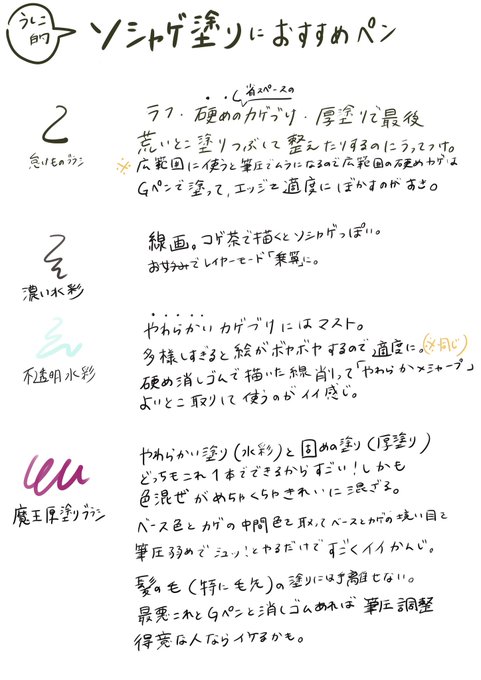 うらこ的
ソシャゲ塗りにおすすめペン
省スペースの
怠けものブラシ
ラフ・硬めのカゲヌリ・厚塗りで最後
荒いとこ塗りつぶして整えたりするのにうってつけ。
※広範囲に使うと筆圧でムラになるので広範囲の硬めカゲは
Gペンで塗って、エッジを適度にぼかすのが吉。
濃い水彩
線画。コゲ茶で描くとソシャゲっぽい。
お好みでレイヤーモード「乗算」に。
不透明水彩
やわらかいカゲヌリにはマスト。
多様しすぎると絵がボヤボヤするので適度に。(※同じ)
硬め消しゴムで描いた線削って「やわらか×シャープ」
よいとこ取りして使うのがイイ感じ。
魔王厚塗りブラシ
やわらかい塗り(水彩)と固めの塗り(厚塗り)
どっちもこれ1本でできるからすごい!しかも
色混ぜがめちゃくちゃきれいに混ざる。
ベース色とカゲの中間色を取ってベースとカゲの境い目で
筆圧弱めでシュッ!とやるだけですごくイイかんじ。
髪の毛(特に毛先)の塗りには手離せない。
最悪これとGペンと消しゴムあれば筆圧調整
得意な人ならイケるかも。